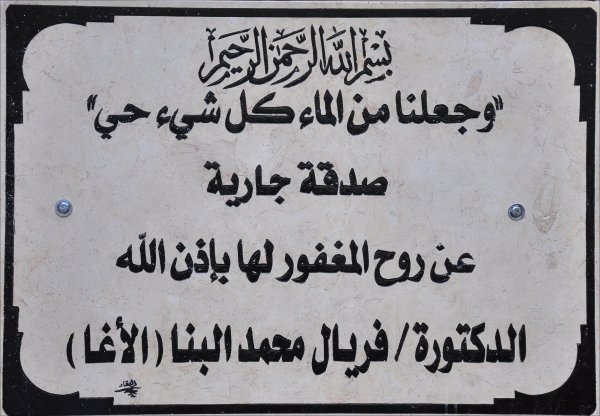 بسم الله الرحمن الرحيم
"وجعلنا من الماء كل شيء حي"
صدقة جارية
عن روح المغفور لها بإذن الله
الدكتورة / فريال محمد البنا (الأغا)